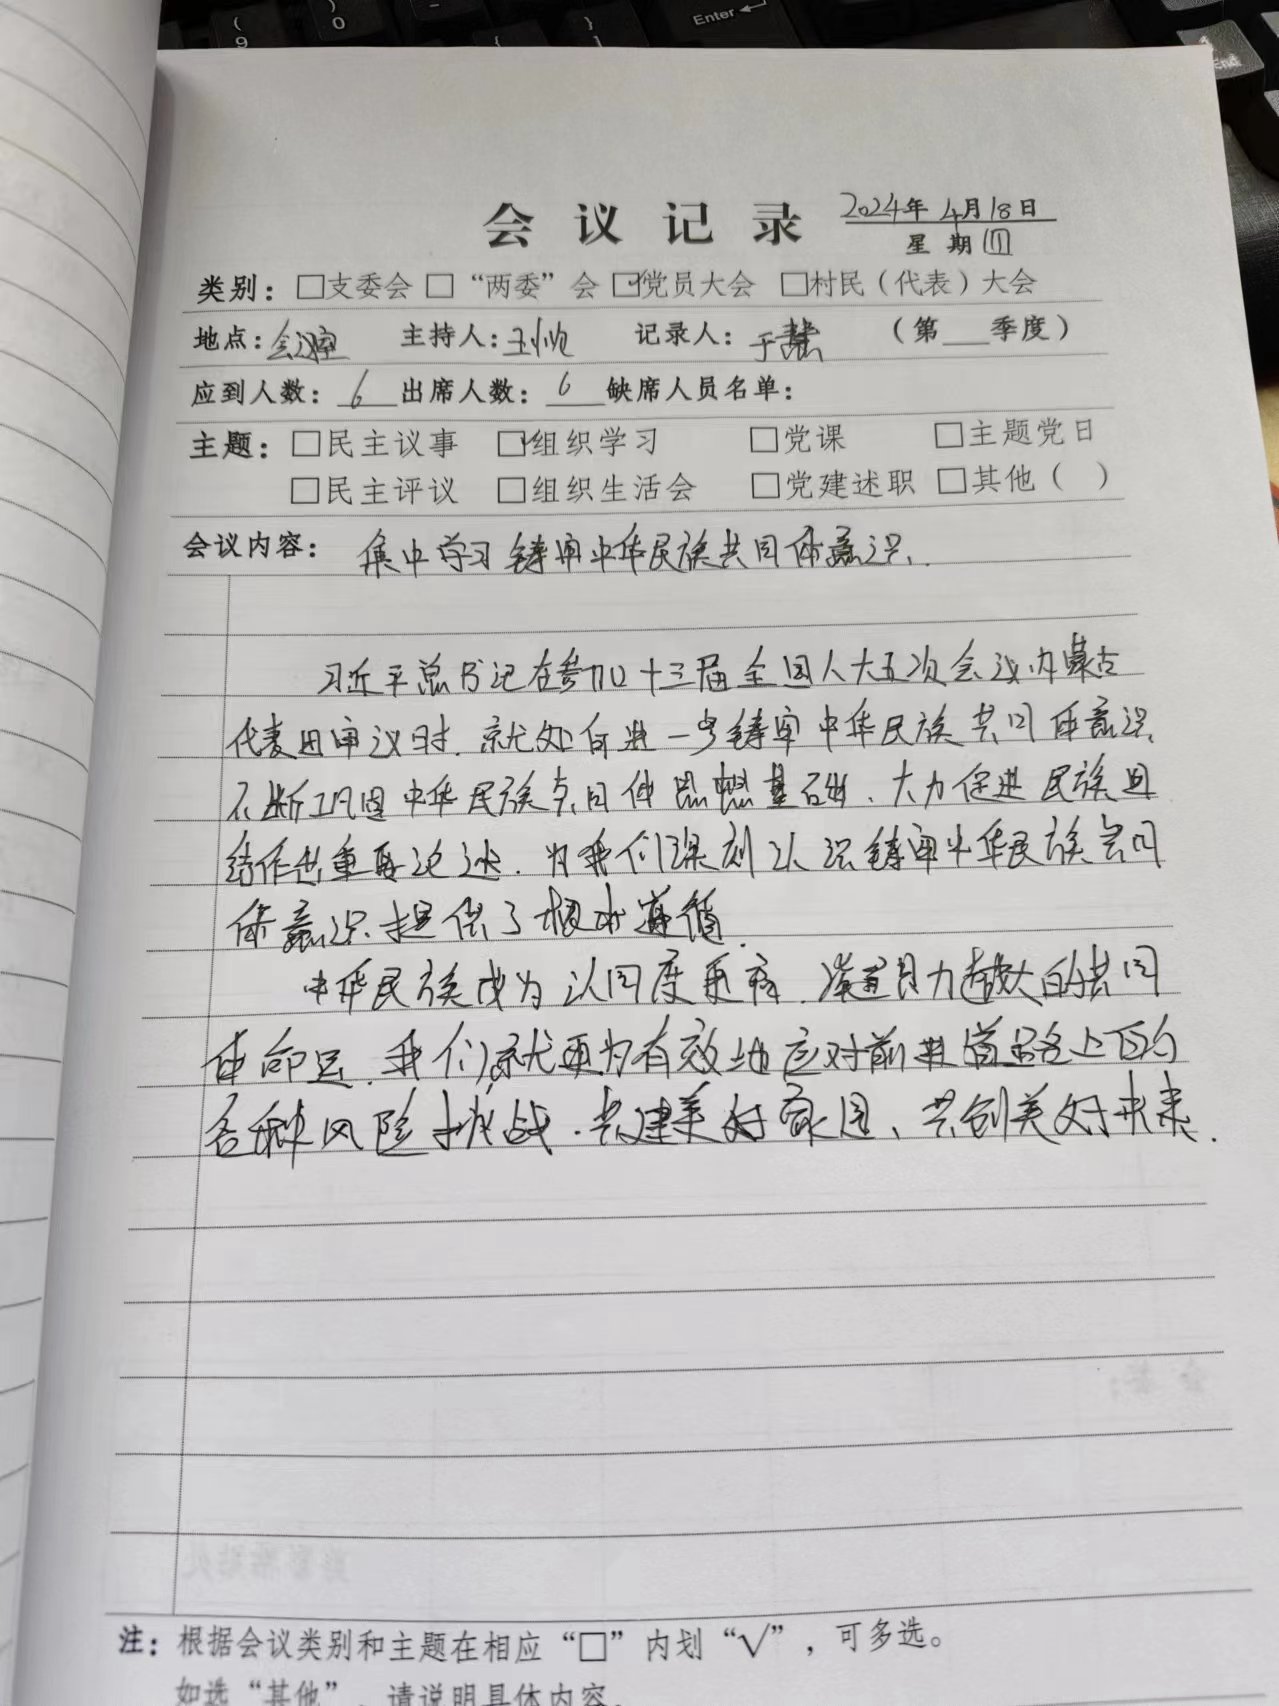 会议记录 2024年4月18日
星期四
类别：□支委会 □“两委”会 ☑党员大会 □村民（代表）大会
地点：会议室 主持人：王帅 记录人：于慧 （第 季度）
应到人数：6 出席人数：6 缺席人员名单：
主题：□民主议事 ☑组织学习 □党课 □主题党日
□民主评议 □组织生活会 □党建述职 □其他（ ）
会议内容：集中学习铸牢中华民族共同体意识.
习近平总书记在参加十三届全国人大五次会议内蒙古
代表团审议时.就如何进一步铸牢中华民族共同体意识
不断巩固中华民族共同体思想基础、大力促进民族团
结作出重要论述.为我们深刻认识铸牢中华民族共同
体意识提供了根本遵循.
中华民族成为认同度更高.凝聚力越大的共同
体命运.我们就更为有效地应对前进道路上的
各种风险挑战.共建美好家园、共创美好未来.
注：根据会议类别和主题在相应“□”内划“√”，可多选。
如选“其他”，请说明具体内容。